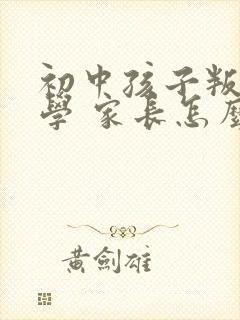 初中孩子叛
學 家長怎
黃劍雄